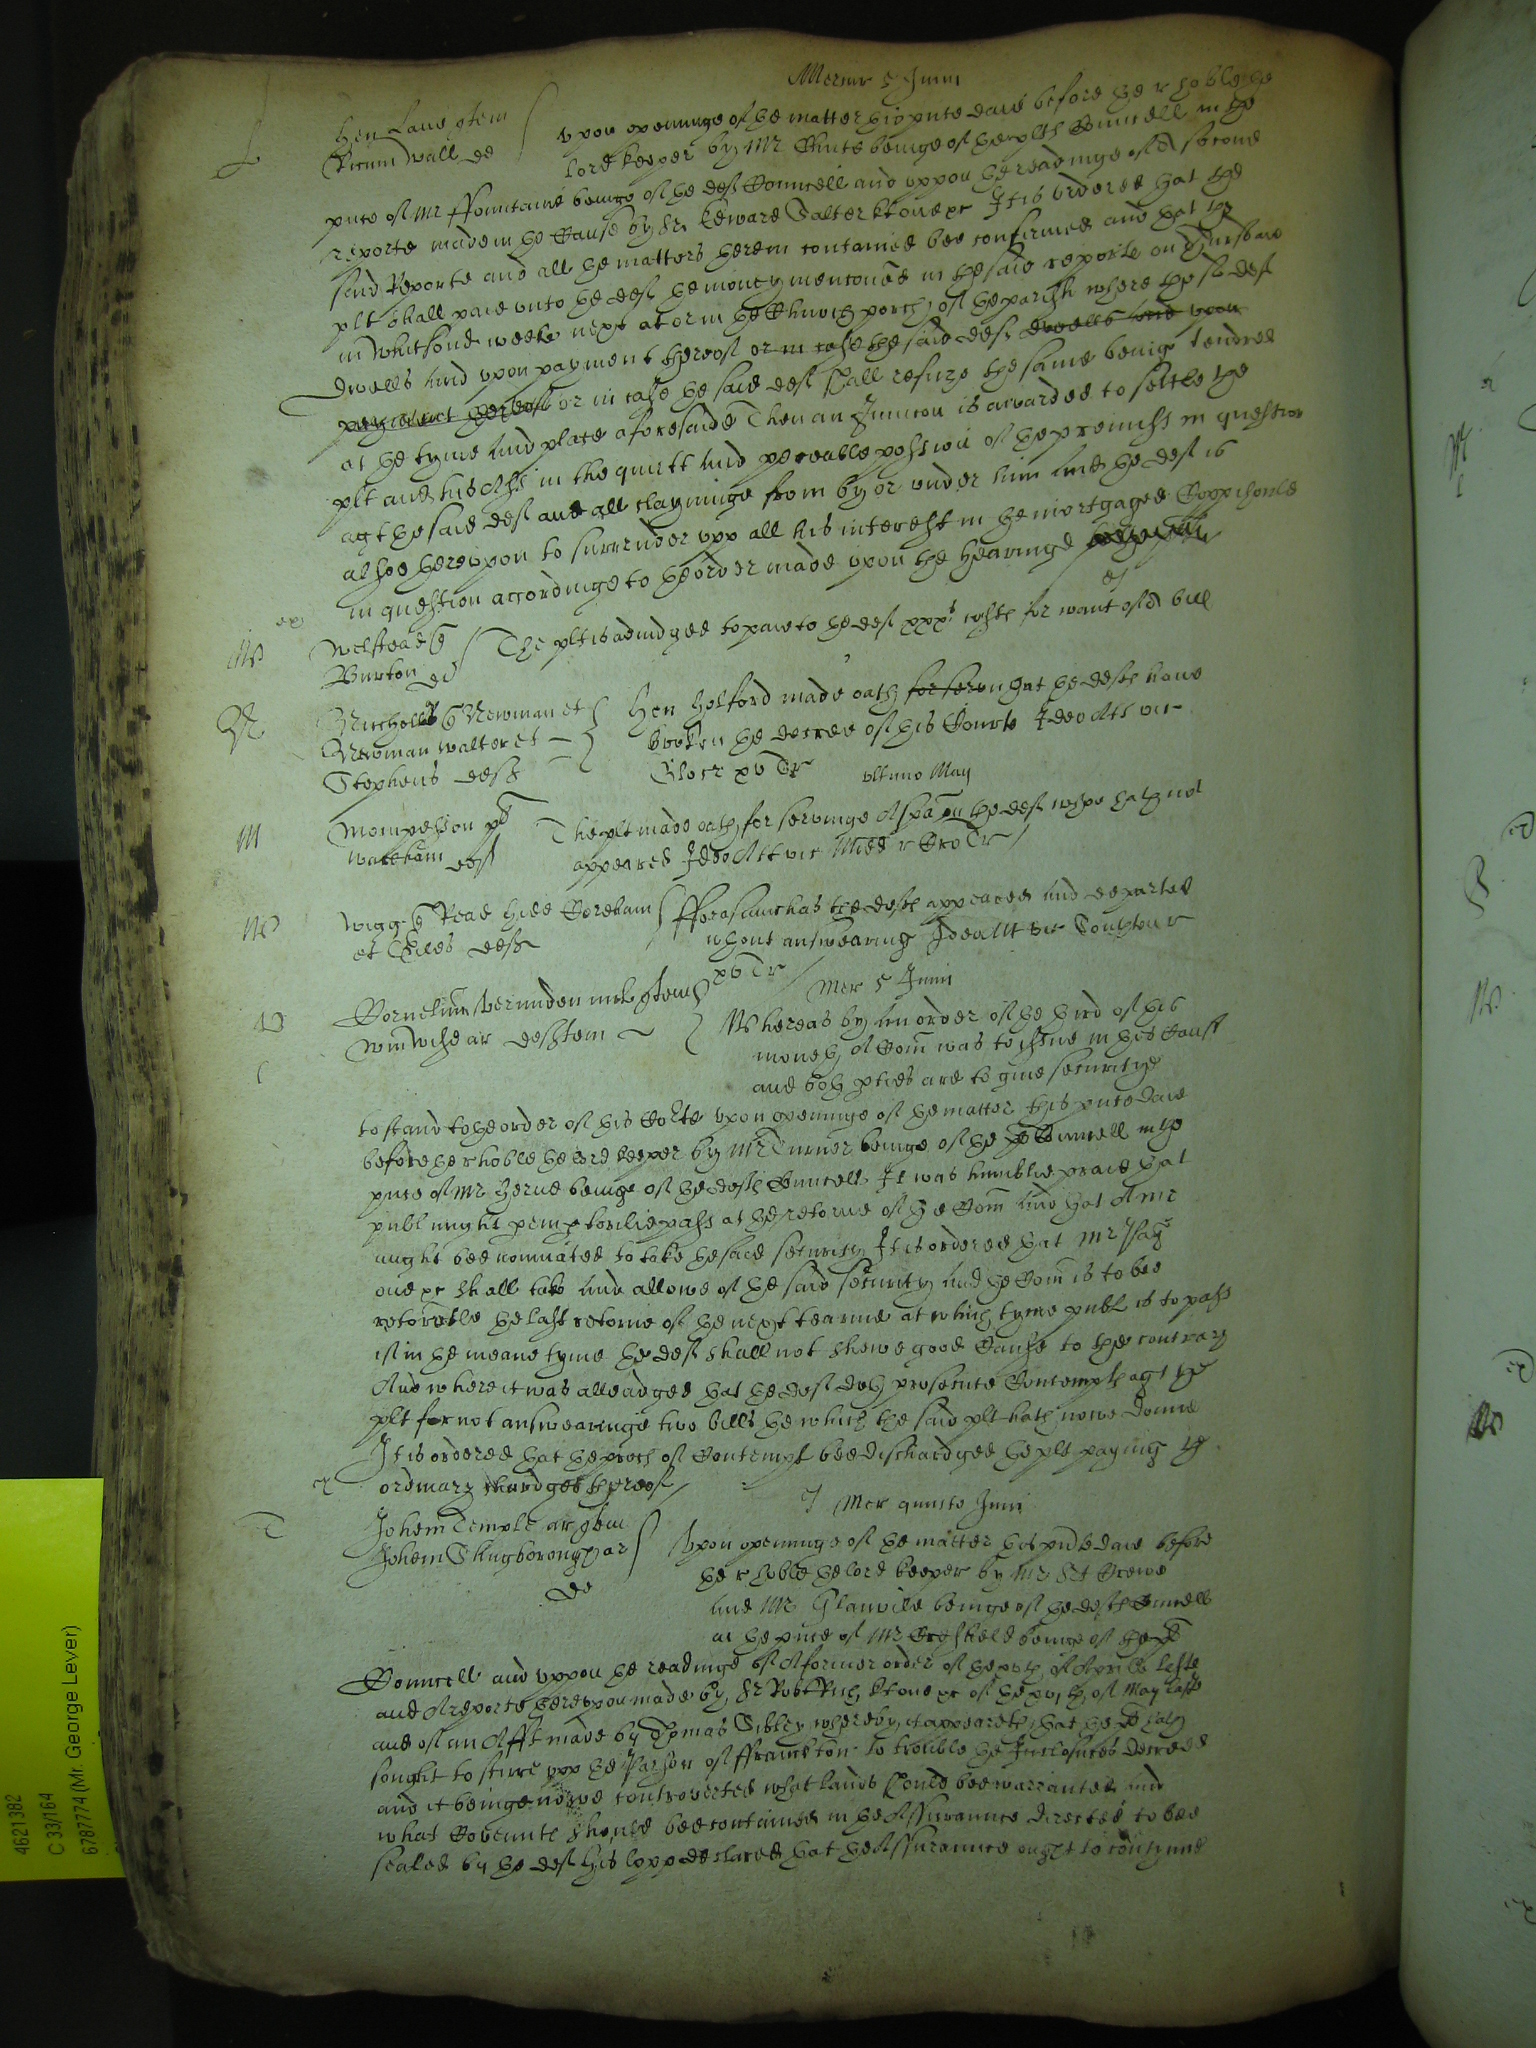 Mercur 5 Junii
L
Hen Lane quem
wall de
upon openinge of the matter this pnte daie before the r hoble the
lord keeper by Mr beinge of the plts Councell in the
pnte of Mr ffountaine beinge of the def Councell and uppon the readinge of a second
reporte made in the Cause by Sr Edward Salter kt one &c It is ordered that the
said Reporte and all the matters therein contained bee confirmed and that the
plt shall paie unto the def the money menconed in the said reporte on Thursdaie
in Whitsond weeke next at or in the Church porch of the parish where the sd def
dwells And upon payment thereof or in case the said def dwells and upon
payment thereof or in case the said def shall refuze the same beinge tendred
at the tyme and place aforesaide Then an Iniuncon is awarded to settle the
plt and his Ass in the quiett and peceable possion of the premisss in question
agt the said def and all clayminge from by or under him And the def is
alsoe thereupon to surrender upp all his interest in the mortgaged Coppiehould
in question accordinge to the order made upon the hearinge
W
Welstead q
Burton de
The plt is adiudged to paie to the def xxxs costs for want of a bill
N
Nicholls q Newman et
Newman Walter et
Stephens defts
Hen Holford made oath for serv that the defts have
broken the decree of this Courte Ideo Att vic
Glocr xv Tr
ultimo May
M
Mompesson q
Wareham def
The plt made oath for servinge A spa on the def whoe hath not
appeared Ideo Att vic Midd r Cro Tr
W
Wigg q Read Hide Coreham
et Giles defts
fforasmuch as the defts appeared and departed
wthout answearing Ideo Att vic
xv Tr
Mer 5 Junii
V
Cornelium Vermuden mil quem
ar deftem
Whereas by an order of the third of this
moneth A Com was to issue in this Cause
and both pties are to give securitye
to stand to the order of this Corte upon openinge of the matter this pnte daie
before the r hoble the lord keeper by Mr Turner beinge of the plts Councell in the
pnte of Mr Herne beinge of the defts Councell It was humblie praied that
publ might pemptorilie pass at the retorne of the Com And that A Mr
might bee nominated to take the said security It is ordered that Mr Page
one &c shall take and allowe of the said security and the Com is to bee
retorneble the last retorne of the next tearme at which tyme publ is to pass
if in the meane tyme the def shall not shewe good Cause to the contrary
And where it was alleadged that the def doth prosecute Contempts agt the
plt for not answearinge two bills the which the said plt hath nowe donne
It is ordered that the proces of Contempt bee dischardged the plt paying the
ordinary chardges thereof
T
Mer quinto Junii
Johem Temple ar quem
Johem ar
de
Upon openinge of the matter this pnte daie before
the r hoble the lord keeper by Mr Srt Crewe
and Mr Glanvile beinge of the defts Councell
at the pnte of Mr beinge of the plts
Councell and uppon the readinge of A former order of the of Aprill laste
and A reporte thereupon made by Sr Robt Rich kt one &c of the xvth of May laste
and of an Afft made by Thomas Sibley whereby it appeareth that the plt hath
sought to stirre upp the Parson of ffranckton to trouble the Inclosures decreed
and it beinge nowe controverted what lands should bee warranted and
what Covennts should bee contained in the Assurannce directed to bee
sealed by the def His lopp declared that the Assurannce ought to continue
4621382
C 33/164
6787774 (Mr. George Lever)